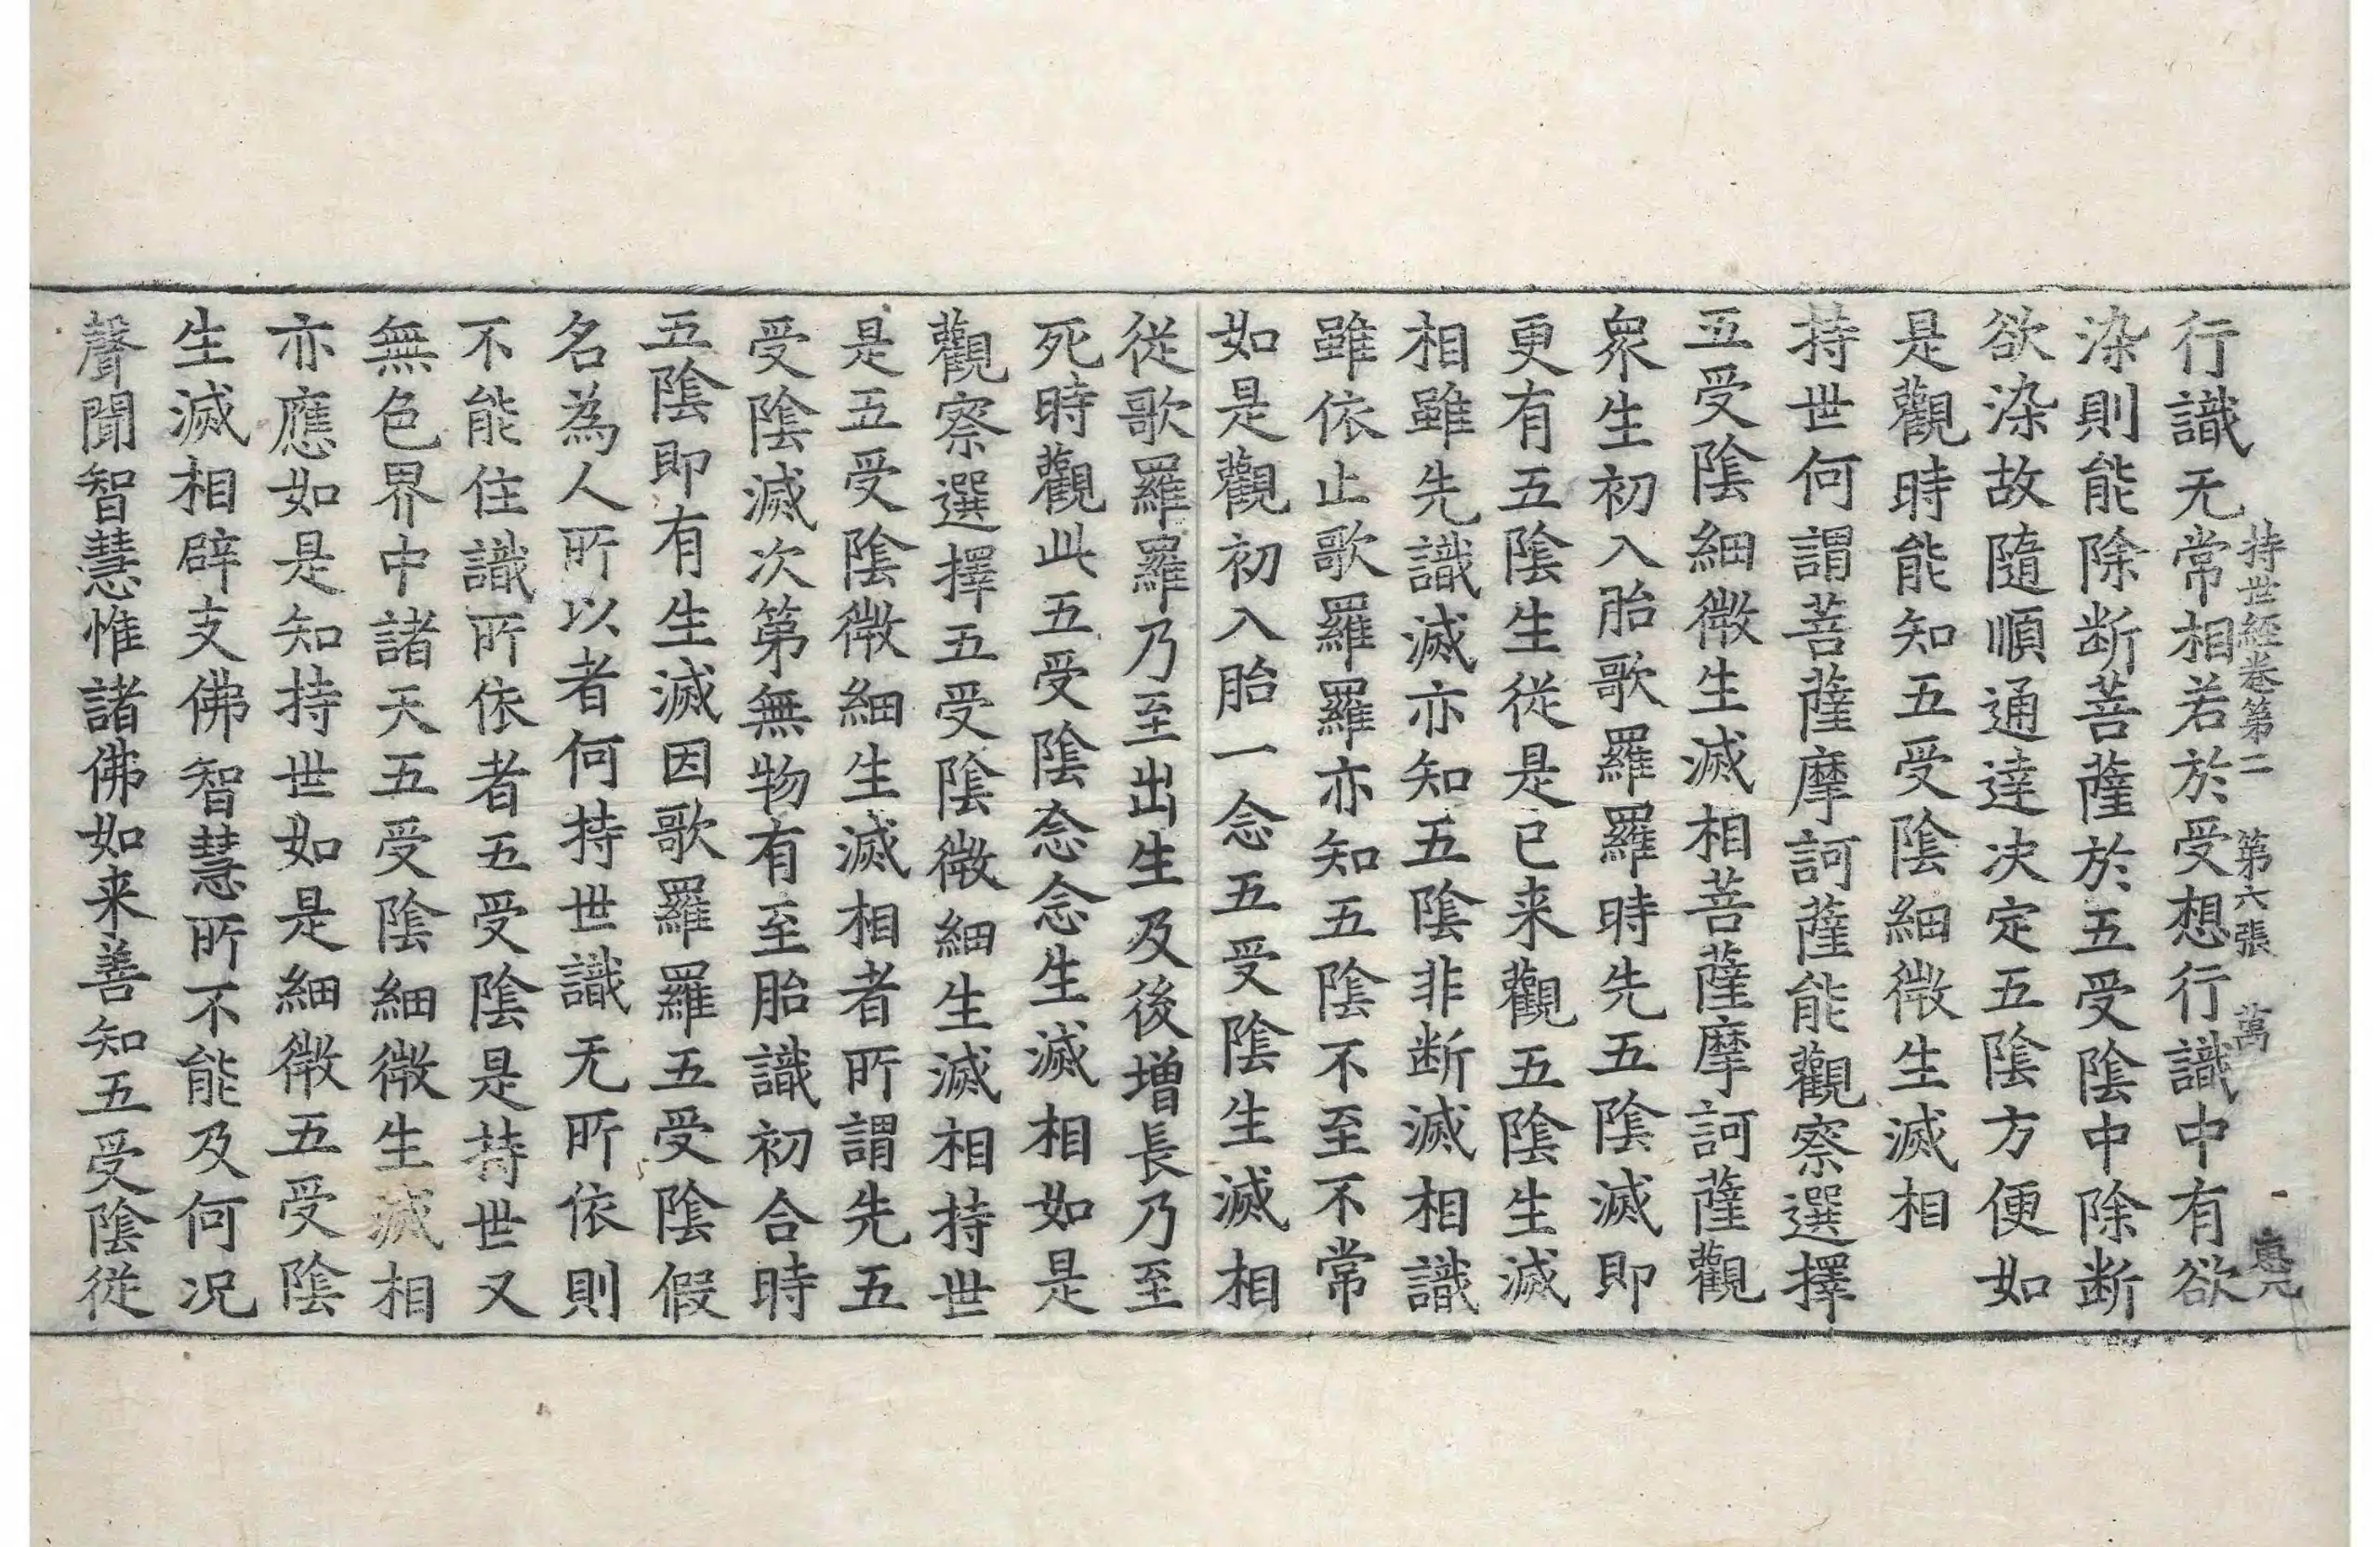 持世經卷第二 第六張 萬
行識无常相若於受想行識中有欲
染則能除断菩薩於五受陰中除断
欲染故隨順通達决定五陰方便如
是觀時能知五受陰細微生滅相
持世何謂菩薩摩訶薩能觀察選擇
五受陰細微生滅相菩薩摩訶薩觀
衆生初入胎歌羅羅時先五陰滅即
更有五陰生從是已来觀五陰生滅
相雖先識滅亦知五陰非断滅相識
雖依止歌羅羅亦知五陰不至不常
如是觀初入胎一念五受陰生滅相
從歌羅羅乃至出生及後增長乃至
死時觀此五受陰念念生滅相如是
觀察選擇五受陰微細生滅相持世
是五受陰微細生滅相者所謂先五
受陰滅次第無物有至胎識初合時
五陰即有生滅因歌羅羅五受陰假
名為人所以者何持世識无所依則
不能住識所依者五受陰是持世又
無色界中諸天五受陰細微生滅相
亦應如是知持世如是細微五受陰
生滅相辟支佛智慧所不能及何况
聲聞智慧惟諸佛如来善知五受陰從